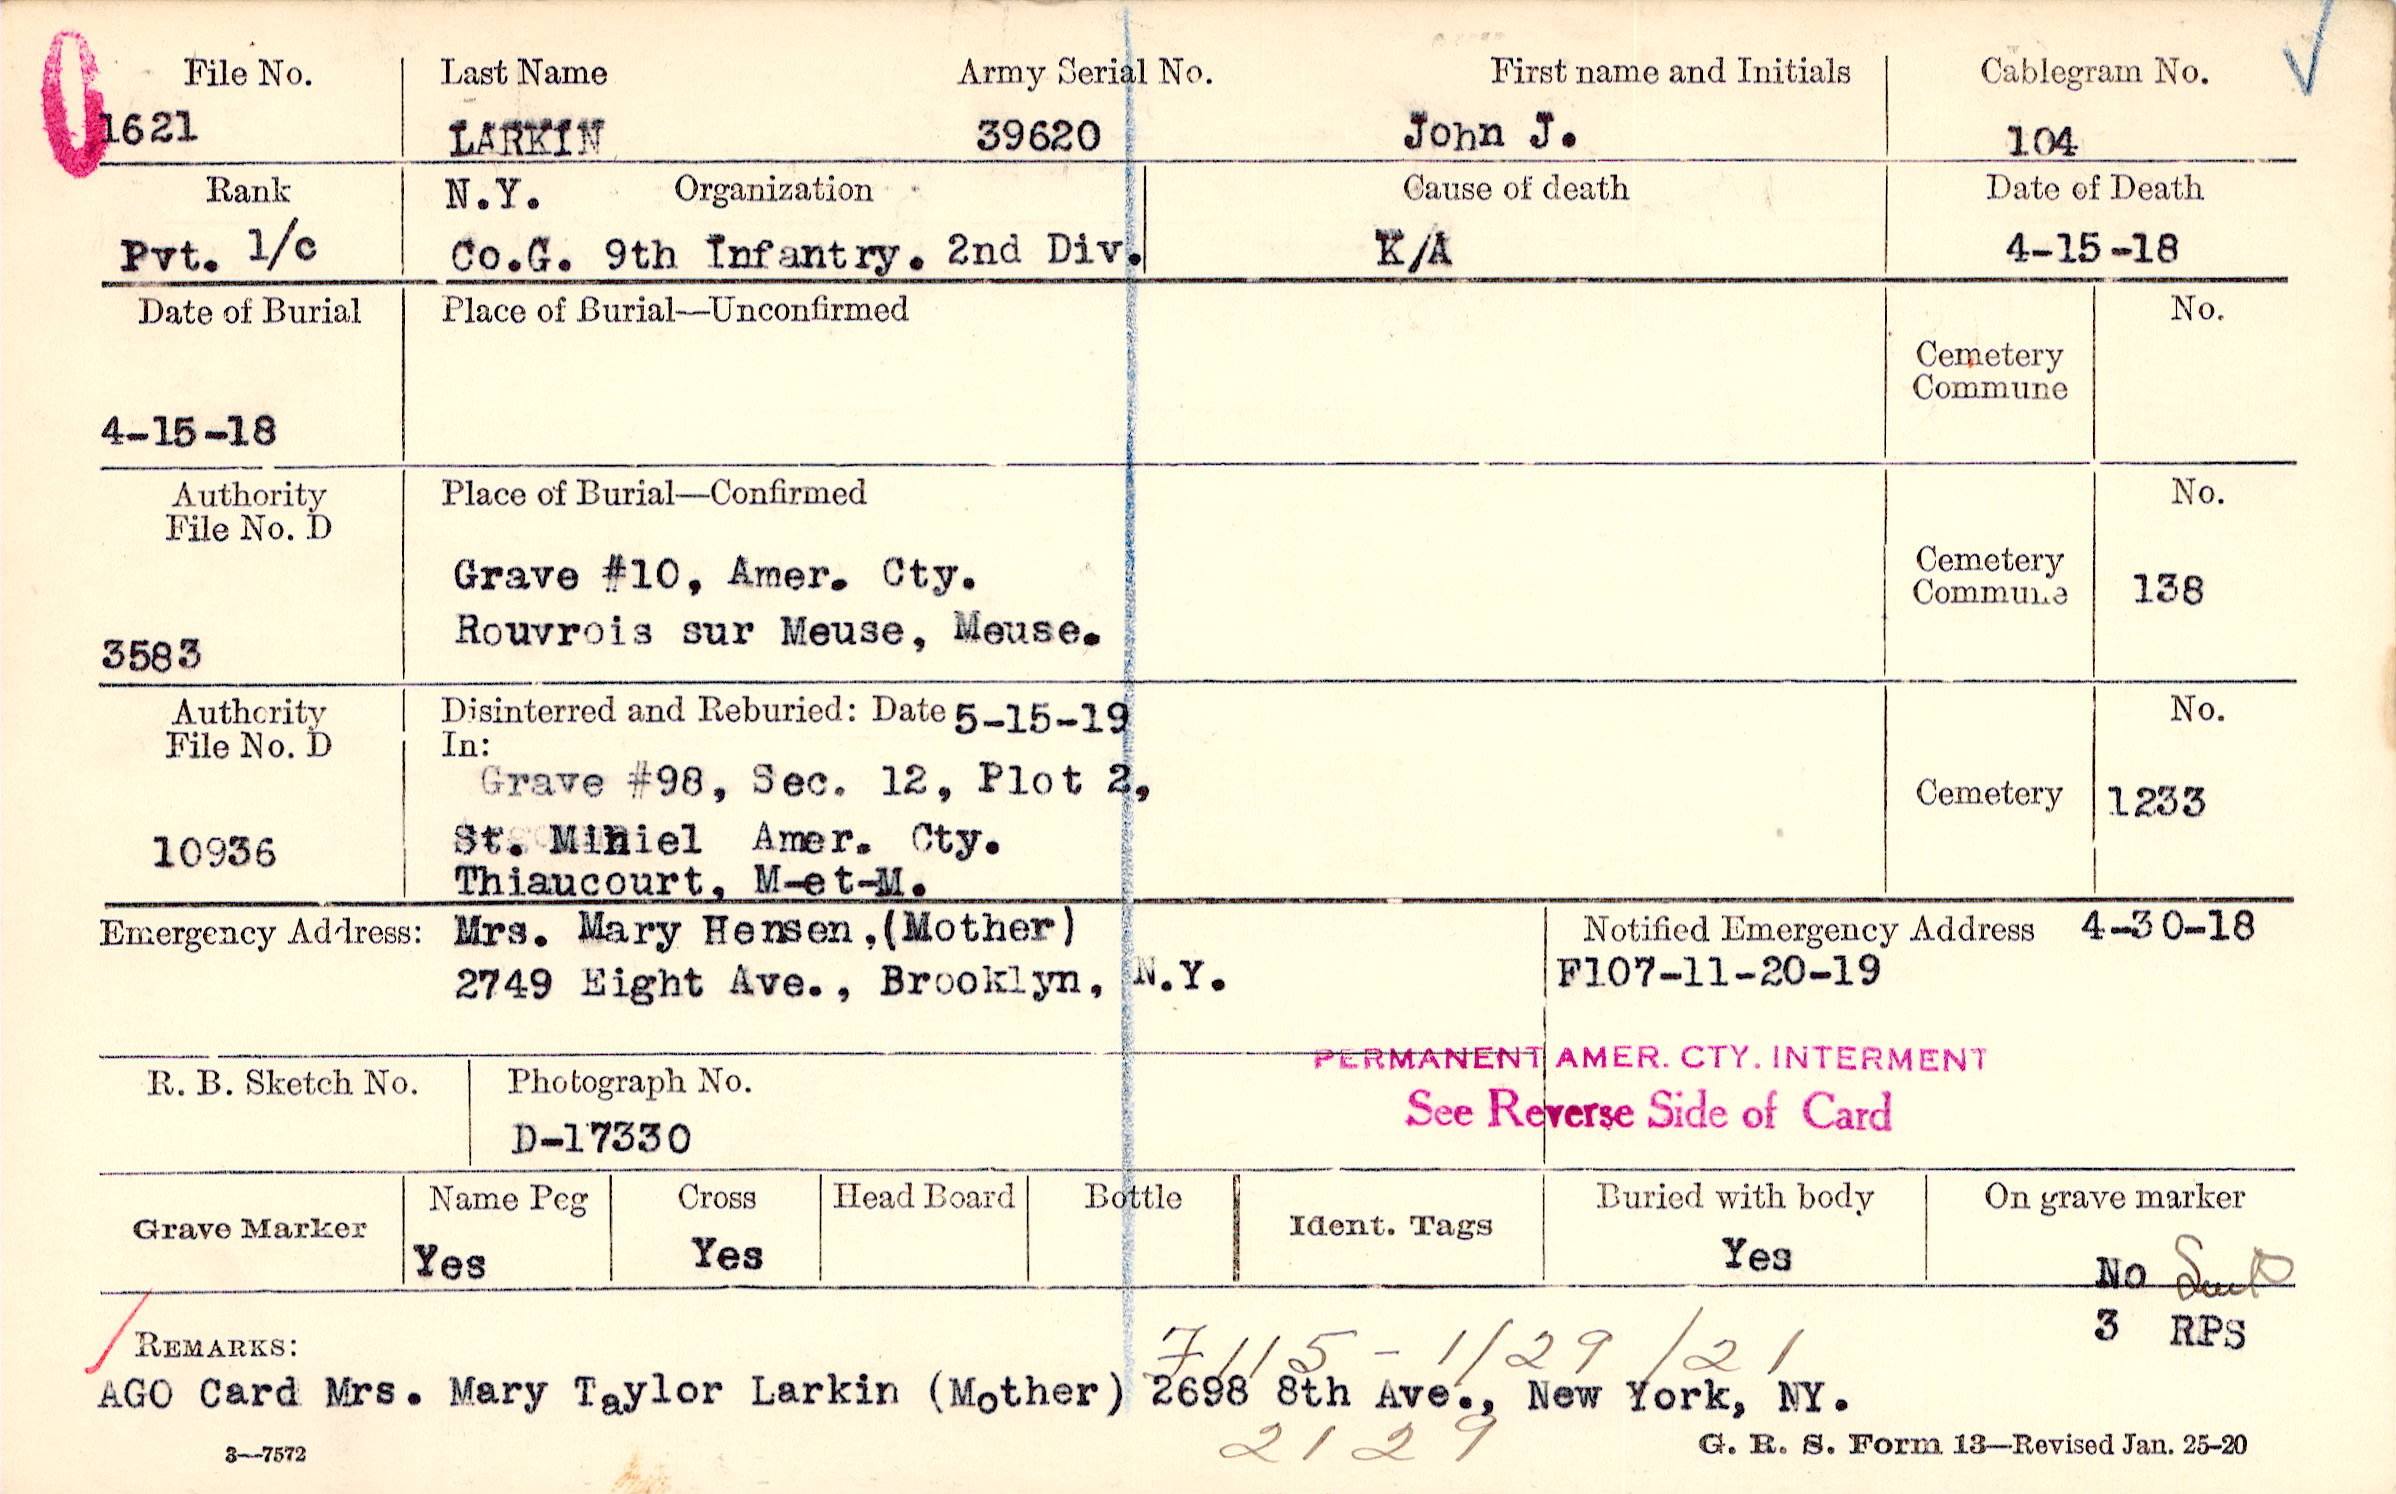 File No. Last Name Army Serial No. First name and Initials Cablegram No.
1621 LARKIN 39620 John J. 104
Rank N.Y. Organization Cause of death Date of Death
Pvt. 1/c Co.G. 9th Infantry. 2nd Div. K/A 4-15-18
Date of Burial Place of Burial—Unconfirmed No.
Cemetery
Commune
4-15-18
Authority Place of Burial—Confirmed No.
File No. D
Grave #10, Amer. Cty. Cemetery
Commune 138
Rouvrois sur Meuse, Meuse.
3583
Authority Disinterred and Reburied: Date 5-15-19 No.
File No. D In:
Grave #98, Sec. 12, Plot 2, Cemetery 1233
10936 St. Mihiel Amer. Cty.
Thiaucourt, M-et-M.
Emergency Address: Mrs. Mary Hensen,(Mother) Notified Emergency Address 4-30-18
2749 Eight Ave., Brooklyn, N.Y. F107-11-20-19
PERMANENT AMER. CTY. INTERMENT
R. B. Sketch No. Photograph No. See Reverse Side of Card
D-17330
Grave Marker Name Peg Cross Head Board Bottle Ident. Tags Buried with body On grave marker
Yes Yes Yes No
3 RPS
REMARKS: 7115 - 1/29/21
AGO Card Mrs. Mary Taylor Larkin (Mother) 2698 8th Ave., New York, NY.
2129
3—7572 G. R. S. Form 13—Revised Jan. 25-20